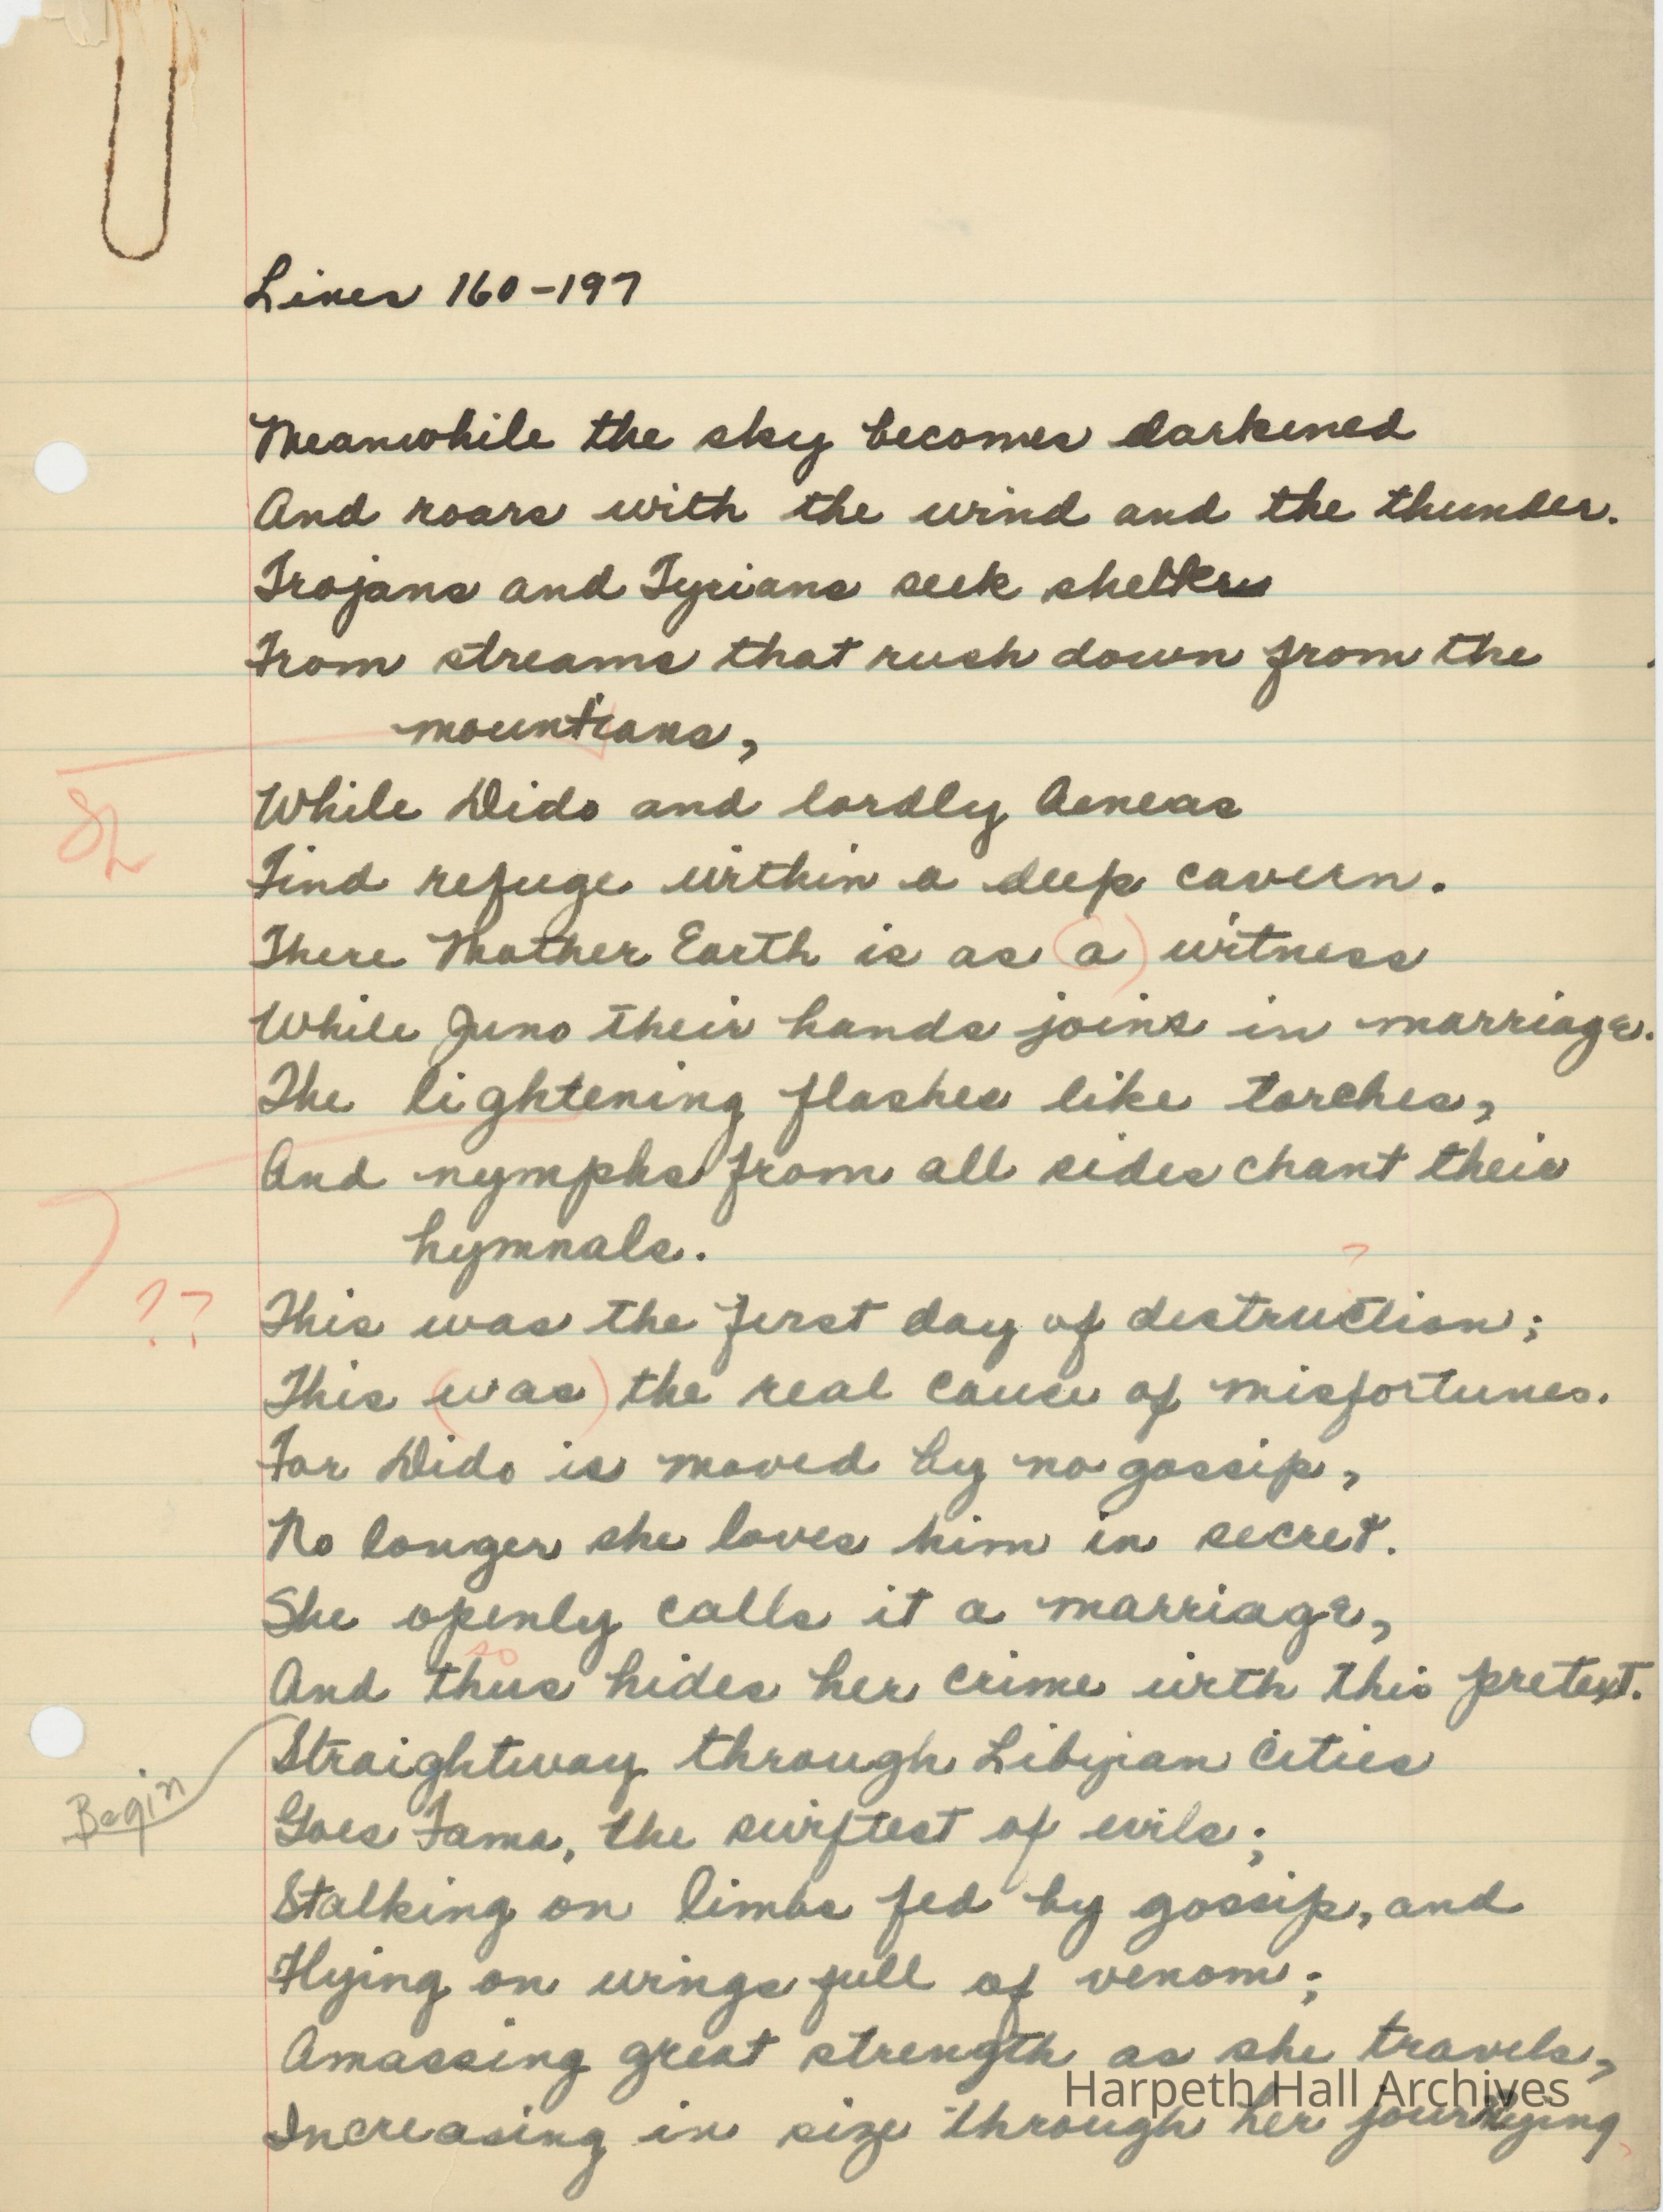 Lines 160-197
Meanwhile the sky becomes darkened
And roars with the wind and the thunder.
Trojans and Tyrians seek shelter
From streams that rush down from the
mountians,
While Dido and lordly Aeneas
Find refuge within a deep cavern.
There Mother Earth is as (a) witness
While Juno their hands joins in marriage.
The lightening flashes like torches,
And nymphs from all sides chant their
hymnals.
?
?? This was the first day of destruction;
This (was) the real cause of misfortunes.
For Dido is moved by no gossip,
No longer she loves him in secret.
She openly calls it a marriage,
so
And thus hides her crime with this pretext.
Straightway through Libyian cities
Begin
Goes Fama, the swiftest of evils;
Stalking on limbs fed by gossip, and
Flying on wings full of venom;
Amassing great strength as she travels,
Harpeth Hall Archives
Increasing in size through her journying